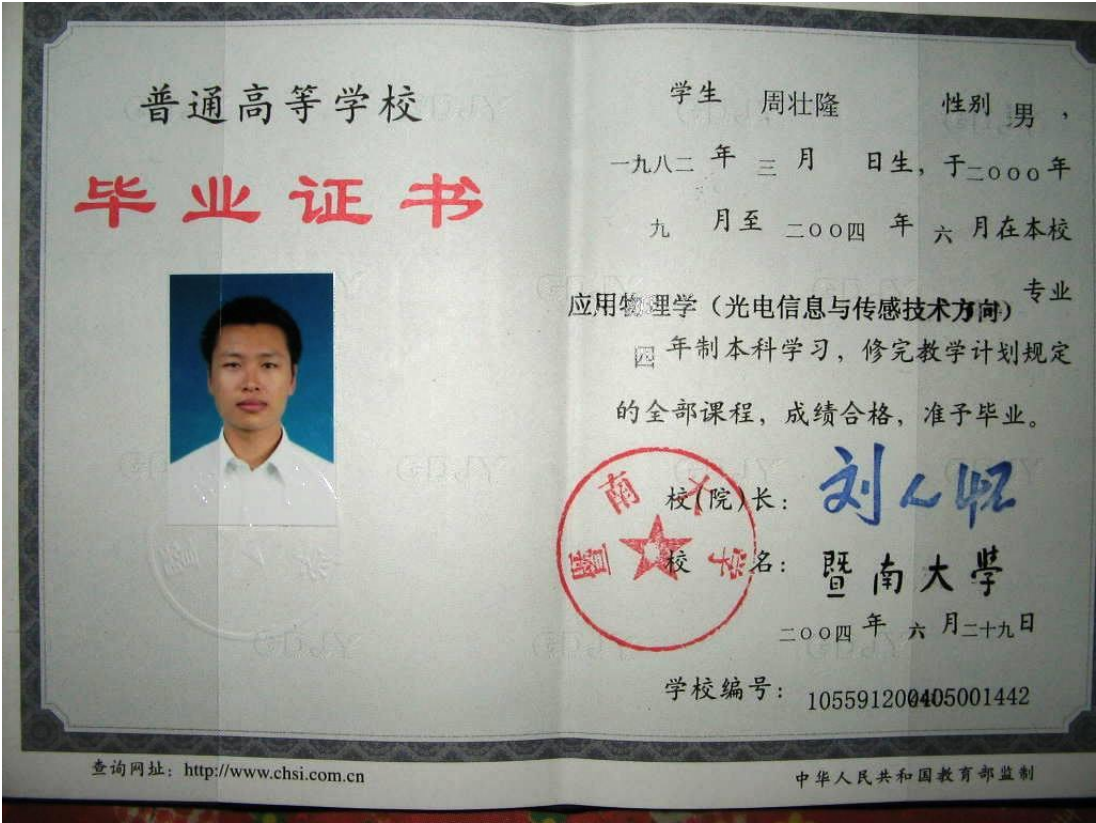 普通高等学校
毕业证书
学生 周壮隆 性别 男，
一九八二 年 三 月 日生，于二〇〇〇年
九 月至 二〇〇四 年 六 月在本校
专业
应用物理学（光电信息与传感技术方向）
四 年制本科学习，修完教学计划规定
的全部课程，成绩合格，准予毕业。
校（院）长： 刘人怀
校 名： 暨南大學
暨南大学
二〇〇四 年 六 月二十九日
学校编号： 105591200405001442
查询网址：http://www.chsi.com.cn
中华人民共和国教育部监制